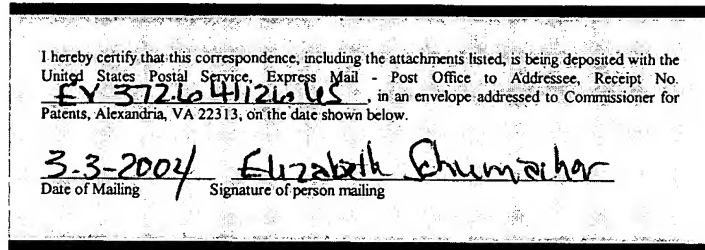 I hereby certify that this correspondence, including the attachments listed, is being deposited with the
United States Postal Service, Express Mail - Post Office to Addressee, Receipt No.
EV 372641126 US, in an envelope addressed to Commissioner for
Patents, Alexandria, VA 22313, on the date shown below.
3-3-2004 Elizabeth Schumacher
Date of Mailing Signature of person mailing